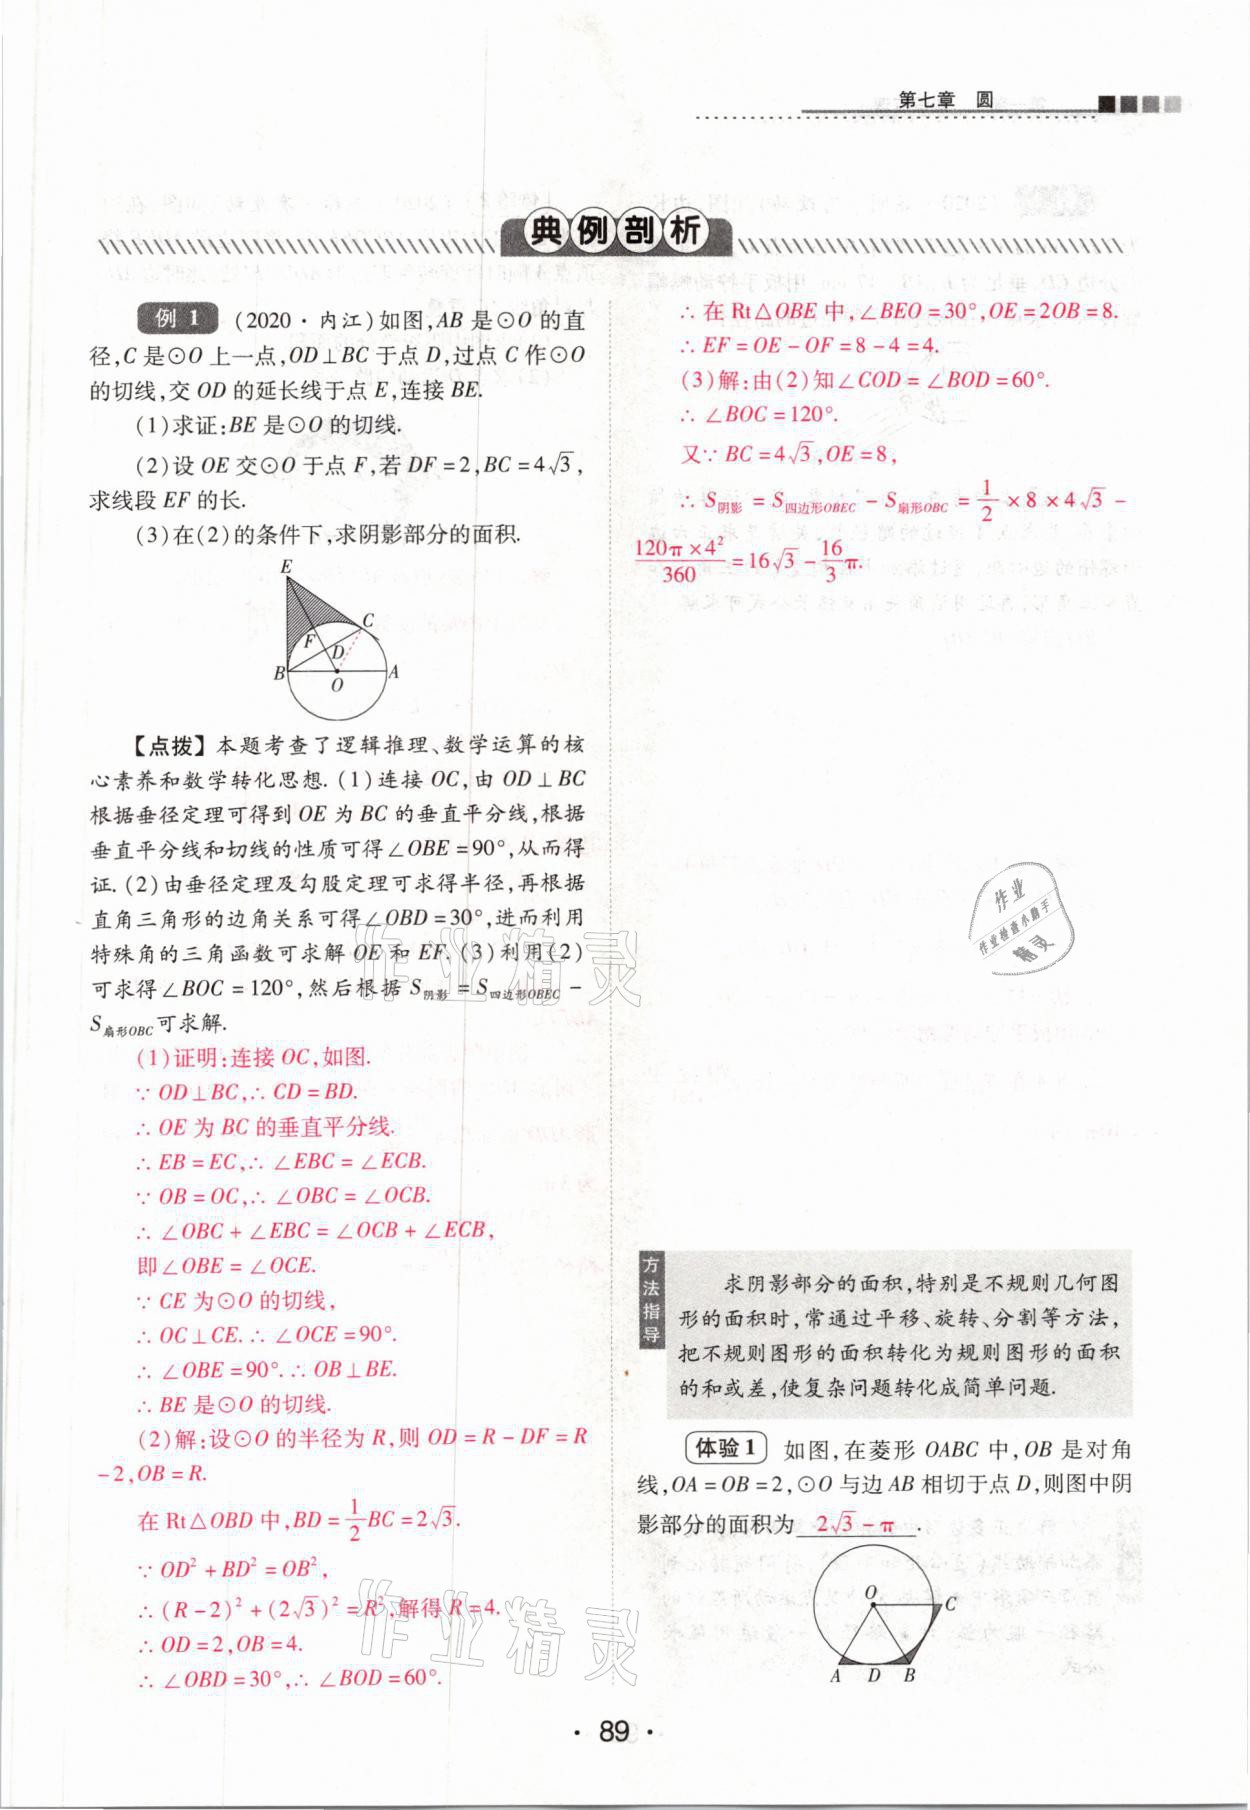 第七章 圆
典例剖析
例 1 (2020·内江)如图,AB 是⊙O 的直
径,C 是⊙O 上一点,OD⊥BC 于点 D,过点 C 作⊙O
的切线,交 OD 的延长线于点 E,连接 BE.
(1)求证:BE 是⊙O 的切线.
(2)设 OE 交⊙O 于点 F,若 DF=2,BC=4√3,
求线段 EF 的长.
(3)在(2)的条件下,求阴影部分的面积.
E
C
F
D
B
O
A
【点拨】本题考查了逻辑推理、数学运算的核
心素养和数学转化思想.(1)连接 OC,由 OD⊥BC
根据垂径定理可得到 OE 为 BC 的垂直平分线,根据
垂直平分线和切线的性质可得∠OBE=90°,从而得
证.(2)由垂径定理及勾股定理可求得半径,再根据
直角三角形的边角关系可得∠OBD=30°,进而利用
特殊角的三角函数可求解 OE 和 EF.(3)利用(2)
可求得∠BOC=120°,然后根据 S阴影=S四边形OBEC-
S扇形OBC可求解.
(1)证明:连接 OC,如图.
∵OD⊥BC,∴CD=BD.
∴OE 为 BC 的垂直平分线.
∴EB=EC,∴∠EBC=∠ECB.
∵OB=OC,∴∠OBC=∠OCB.
∴∠OBC+∠EBC=∠OCB+∠ECB,
即∠OBE=∠OCE.
∵CE 为⊙O 的切线,
∴OC⊥CE.∴∠OCE=90°.
∴∠OBE=90°.∴OB⊥BE.
∴BE 是⊙O 的切线.
(2)解:设⊙O 的半径为 R,则 OD=R-DF=R
-2,OB=R.
在 Rt△OBD 中,BD=1/2BC=2√3.
∵OD²+BD²=OB²,
∴(R-2)²+(2√3)²=R²,解得 R=4.
∴OD=2,OB=4.
∴∠OBD=30°,∴∠BOD=60°.
∴在 Rt△OBE 中,∠BEO=30°,OE=2OB=8.
∴EF=OE-OF=8-4=4.
(3)解:由(2)知∠COD=∠BOD=60°.
∴∠BOC=120°.
又∵BC=4√3,OE=8,
∴S阴影=S四边形OBEC-S扇形OBC=1/2×8×4√3-
120π×4²/360=16√3-16/3π.
作业
作业检查小助手
精灵
方法指导
求阴影部分的面积,特别是不规则几何图
形的面积时,常通过平移、旋转、分割等方法,
把不规则图形的面积转化为规则图形的面积
的和或差,使复杂问题转化成简单问题.
体验1 如图,在菱形 OABC 中,OB 是对角
线,OA=OB=2,⊙O 与边 AB 相切于点 D,则图中阴
影部分的面积为 2√3-π .
O
C
A D B
作业精灵
作业精灵
·89·